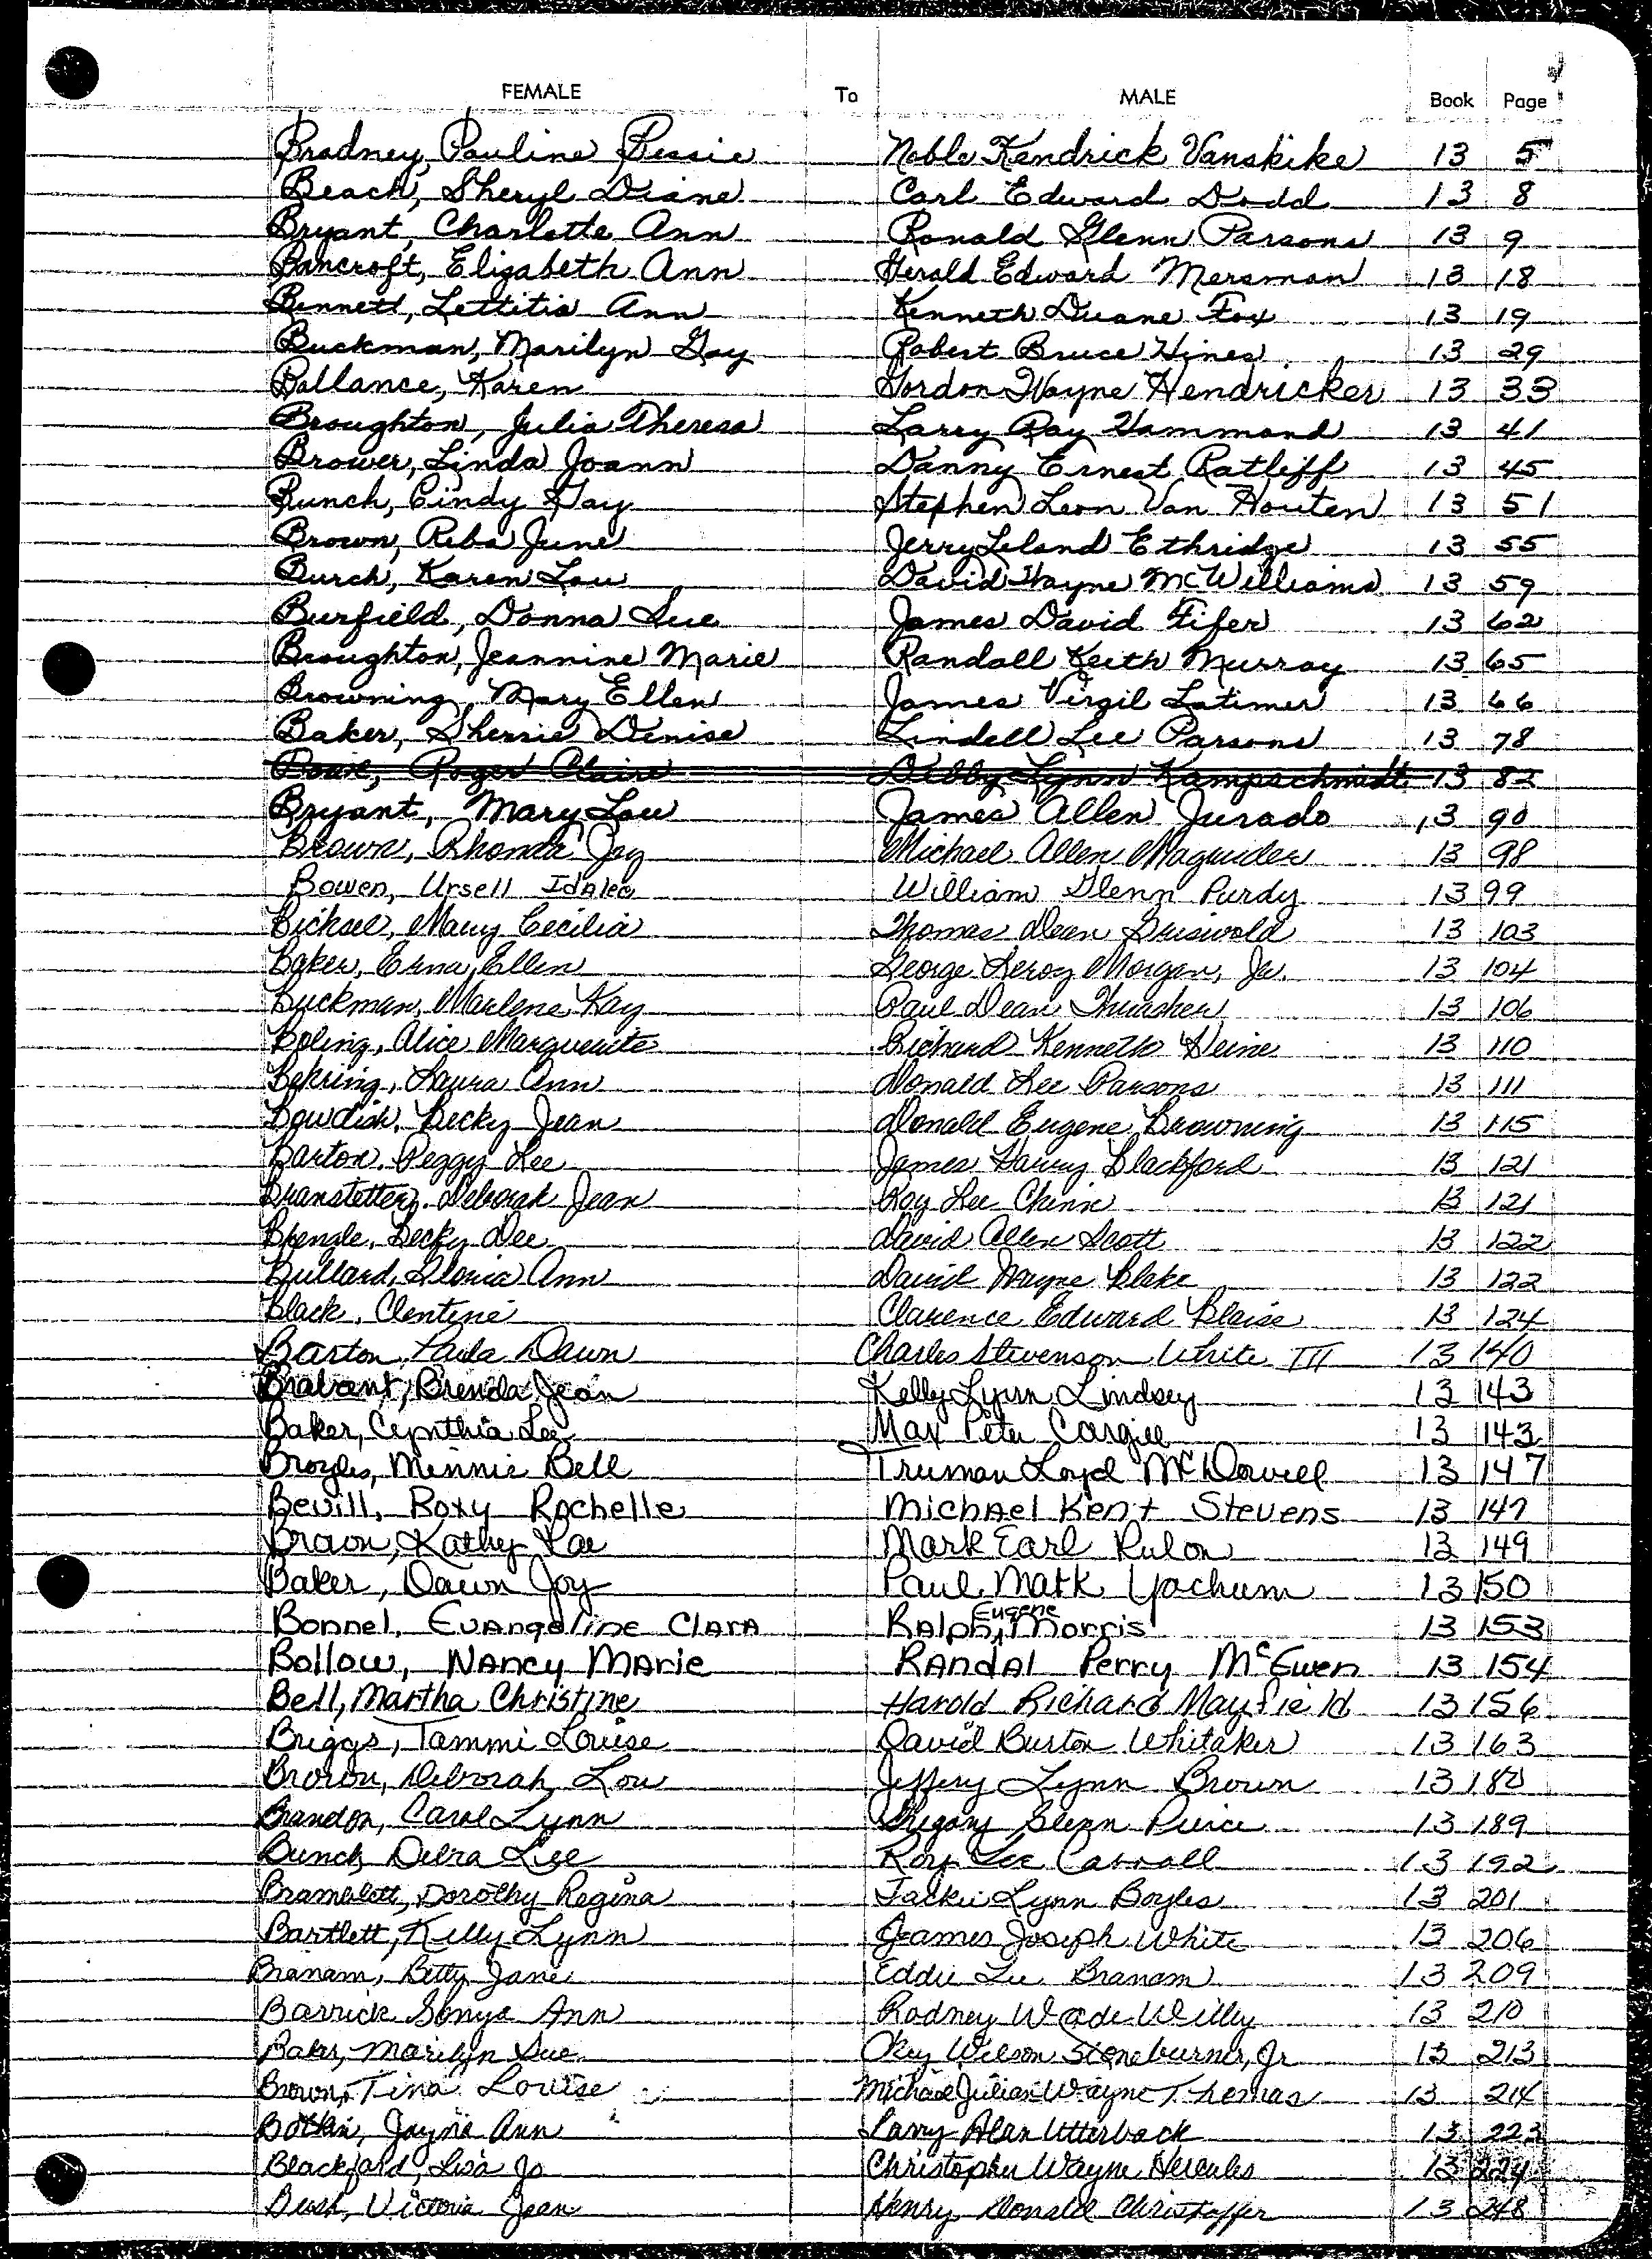 FEMALE To MALE Book Page
Bradney, Pauline Bessie Noble Kendrick Vanskike 13 5
Beach, Sheryl Diane Carl Edward Dodd 13 8
Bryant, Charlotte Ann Ronald Glenn Parsons 13 9
Bancroft, Elizabeth Ann Herald Edward Mersman 13 18
Bennett, Lettitia Ann Kenneth Duane Fox 13 19
Buckman, Marilyn Gay Robert Bruce Hines 13 29
Ballance, Karen Gordon Wayne Hendricker 13 33
Broughton, Julia Theresa Larry Ray Hammond 13 41
Brower, Linda Joann Danny Ernest Ratliff 13 45
Bunch, Cindy Gay Stephen Leon Van Houten 13 51
Brown, Reba June Jerry Leland Ethridge 13 55
Burch, Karen Lou David Wayne McWilliams 13 59
Burfield, Donna Sue James David Fifer 13 62
Broughton, Jeannine Marie Randall Keith Murray 13 65
Browning, Mary Ellen James Virgil Latimer 13 66
Baker, Sherrie Denise Lindell Lee Parsons 13 78
Roger Claire Debby Lynn Kampschmidt 13 82
Bryant, Mary Lou James Allen Jurado 13 90
Brown, Rhonda Joy Michael Allen Magruder 13 98
Bowen, Ursell Idalea William Glenn Purdy 13 99
Bichsel, Mary Cecilia Thomas Dean Griswold 13 103
Baker, Erma Ellen George Leroy Morgan, Jr. 13 104
Buckman, Marlene Kay Paul Dean Thrasher 13 106
Boling, Alice Marguerite Richard Kenneth Heine 13 110
Behring, Laura Ann Donald Lee Parsons 13 111
Bowdish, Becky Jean Donald Eugene Browning 13 115
Barton, Peggy Lee James Harry Blackford 13 121
Branstetter, Deborah Jean Roy Lee Chinn 13 121
Becky Dee David Allen Scott 13 122
Bullard, Gloria Ann David Wayne Blake 13 122
Black, Clentine Clarence Edward Blaise 13 124
Barton, Paula Dawn Charles Stevenson White III 13 140
Brabant, Brenda Jean Kelly Lynn Lindsey 13 143
Baker, Cynthia Lee Max Peter Cargill 13 143
Broyles, Minnie Bell Truman Loyd McDowell 13 147
Bevill, Roxy Rochelle Michael Kent Stevens 13 147
Brown, Kathy Rae Mark Earl Rulon 13 149
Baker, Dawn Joy Paul Mark Yochum 13 150
Bonnel, Evangeline Clara Ralph Eugene Morris 13 153
Bollow, Nancy Marie Randal Perry McEwen 13 154
Bell, Martha Christine Harold Richard Mayfield 13 156
Briggs, Tammi Louise David Burton Whitaker 13 163
Brown, Deborah Lou Jeffery Lynn Brown 13 180
Brandon, Carol Lynn Gregory Glenn Pierce 13 189
Bunch Debra Lee Roy Lee Carroll 13 192
Bramblett, Dorothy Regina Jackie Lynn Boyles 13 201
Bartlett, Kelly Lynn James Joseph White 13 206
Branam, Betty Jane Eddie Lee Branam 13 209
Barrick Sonya Ann Rodney Wade Willy 13 210
Baker, Marilyn Sue Okey Wilson Stoneburner, Jr 13 213
Brown, Tina Louise Michael Julian Wayne Thomas 13 214
Botkin, Jayna Ann Larry Alan Utterback 13 223
Blackford, Lisa Jo Christopher Wayne Hercules 13 224
Bush, Victoria Jean Henry Donald Christoffer 13 248